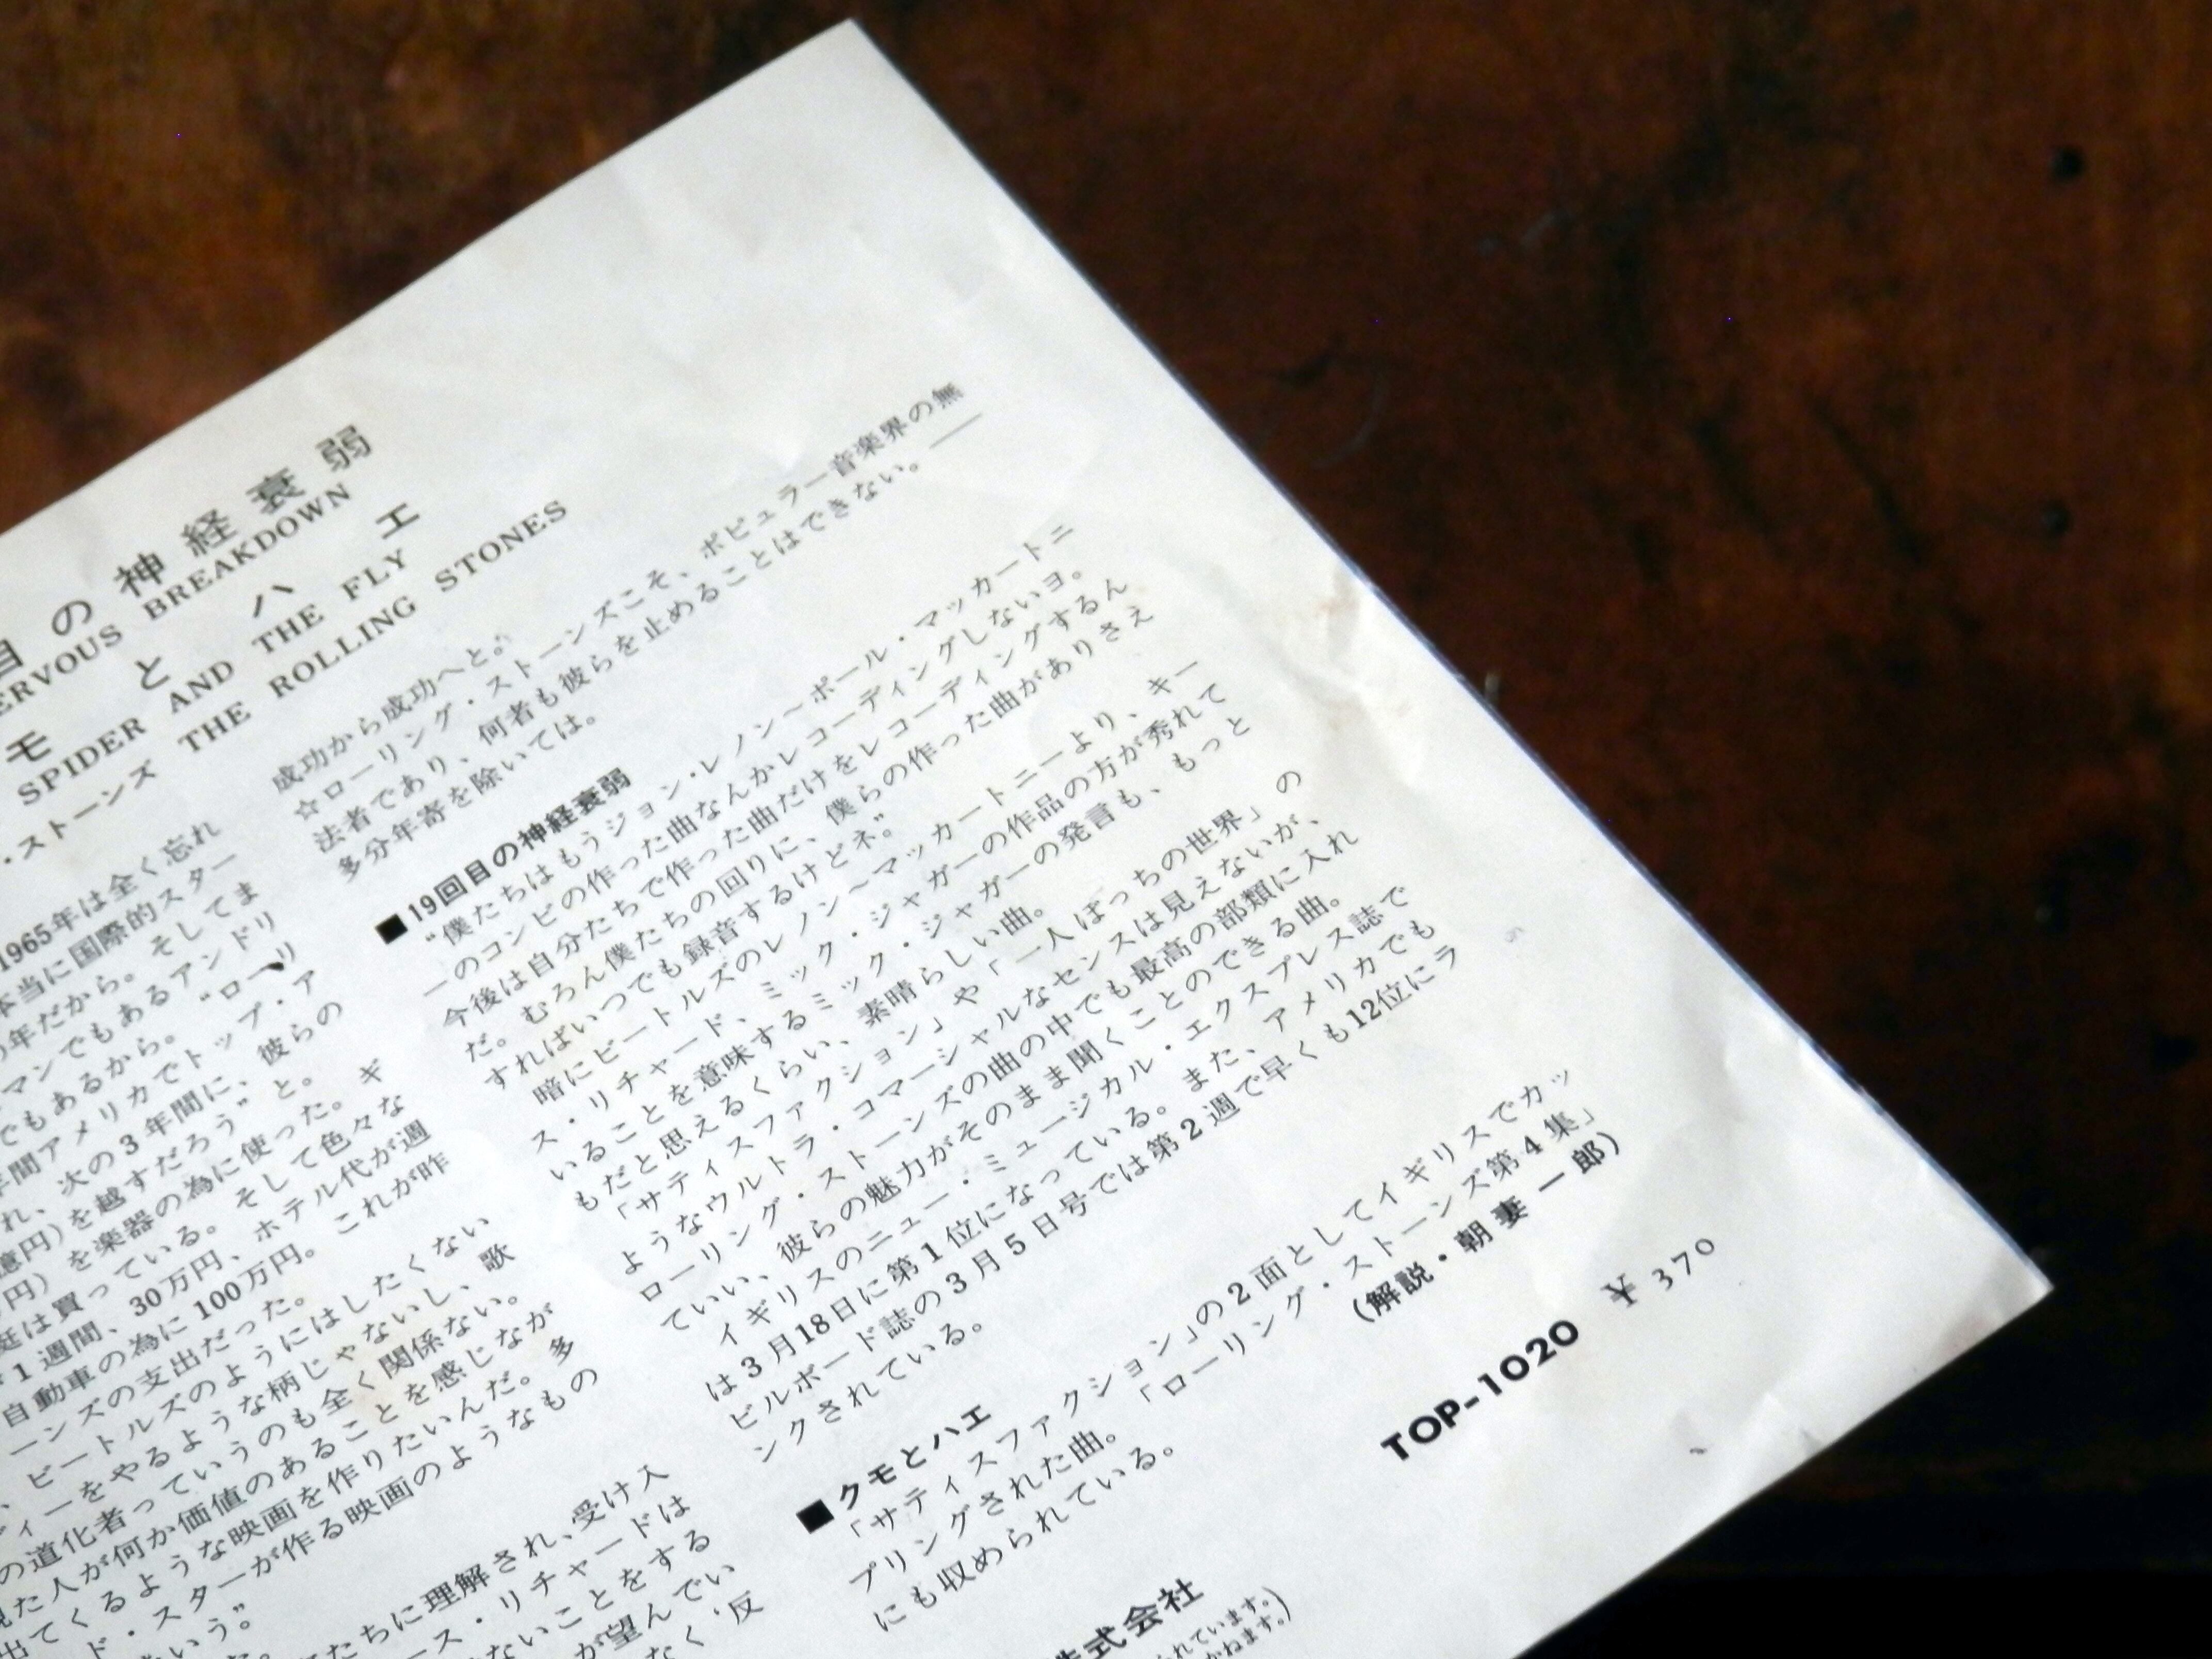 目の神経衰弱
ERVOUS BREAKDOWN
モとハエ
SPIDER AND THE FLY
・ストーンズ THE ROLLING STONES
1965年は全く忘れ
本当に国際的スター
の年だから。そしてま
マンでもあるアンドリ
でもあるから。“ローリ
年間アメリカでトップ・ア
れ、次の3年間に、彼らの
億円)を越すだろう”と。
円)を楽器の為に使った。ギ
庭は買っている。そして色々な
1週間、30万円、ホテル代が週
自動車の為に100万円。これが昨
ーンズの支出だった。
、ビートルズのようにはしたくない
ディーをやるような柄じゃないし、歌
の道化者っていうのも全く関係ない。
見た人が何か価値のあることを感じなが
出てくるような映画を作りたいんだ。多
ド・スターが作る映画のようなもの
いう。”
たちに理解され、受け入
ース・リチャードは
ないことをする
が望んでい
なく‘反
成功から成功へと。”
☆ローリング・ストーンズこそ、ポピュラー音楽界の無
法者であり、何者も彼らを止めることはできない。——
多分年寄を除いては。
■19回目の神経衰弱
“僕たちはもうジョン・レノン〜ポール・マッカートニ
ーのコンビの作った曲なんかレコーディングしないヨ。
今後は自分たちで作った曲だけをレコーディングするん
だ。むろん僕たちの回りに、僕らの作った曲がありさえ
すればいつでも録音するけどネ”。
暗にビートルズのレノン〜マッカートニーより、キー
ス・リチャード、ミック・ジャガーの作品の方が秀れて
いることを意味するミック・ジャガーの発言も、もっと
もだと思えるくらい、素晴らしい曲。
「サティスファクション」や「一人ぼっちの世界」の
ようなウルトラ・コマーシャルなセンスは見えないが、
ローリング・ストーンズの曲の中でも最高の部類に入れ
ていい、彼らの魅力がそのまま聞くことのできる曲。
イギリスのニュー・ミュージカル・エクスプレス誌で
は3月18日に第1位になっている。また、アメリカでも
ビルボード誌の3月5日号では第2週で早くも12位にラ
ンクされている。
■クモとハエ
「サティスファクション」の2面としてイギリスでカッ
プリングされた曲。「ローリング・ストーンズ第4集」
にも収められている。
(解説・朝妻一郎)
TOP-1020 ¥370
株式会社
られています。
かねます。)